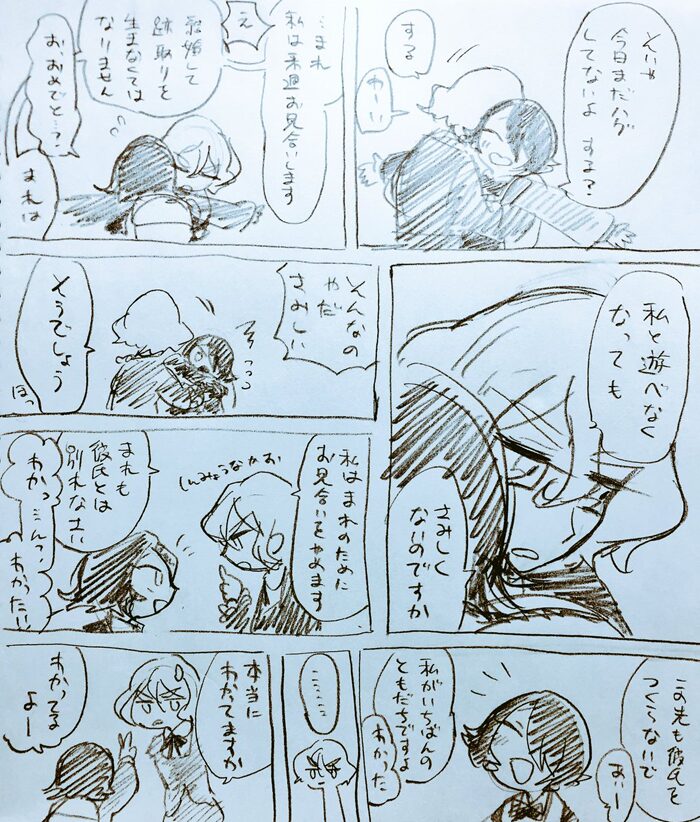 えいや
今日まだハグ
してないよ する?
する
わーい
…まれ
私は来週お見合いします
え
結婚して
跡取りを
生まなくては
なりません
おおめでとう?
まれは
私と遊べなく
なっても
さみしく
ないのですか
そんなの
やだ
さみしい
そうでしょう
ほっ
私はまれのために
お見合いをやめます
しんみょうなかお
まれも
彼氏とは
別れなさい
わかっ…んて、
わかったい
この先も彼氏を
つくらないで
おぃー
私がいちばんの
ともだちですよ
わかった
…………
本当に
わかてますか
わかってる
よー